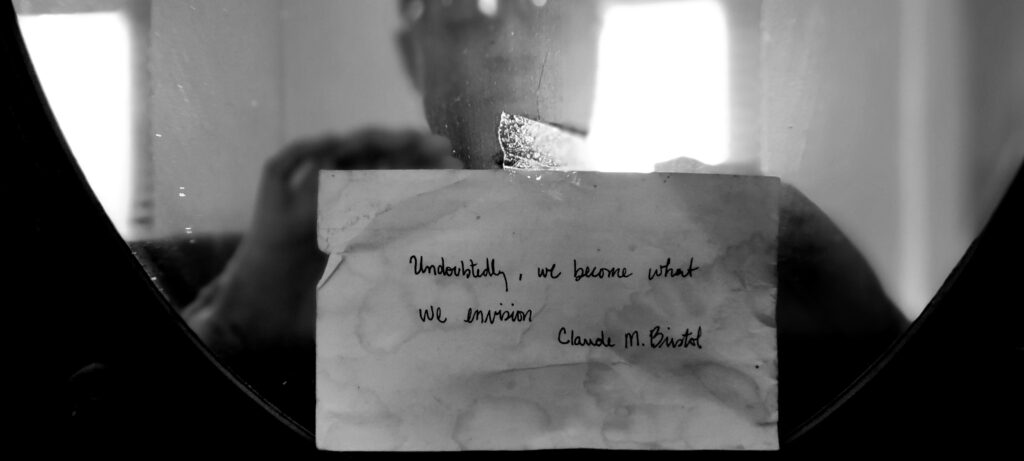 Undoubtedly, we become what
we envision
Claude M. Bristol